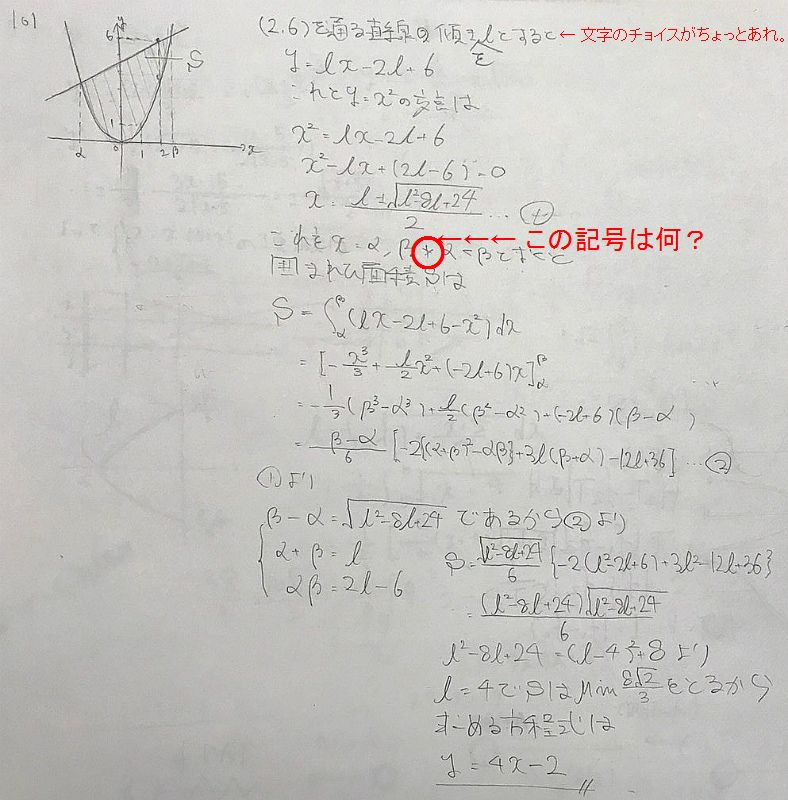 101
y
6
S
1
α 0 1 2 β x
(2.6)を通る直線の傾きをlとすると ← 文字のチョイスがちょっとあれ。
y = lx-2l+6
これとy=x²の交点は
x² = lx-2l+6
x²-lx+(2l-6)=0
x = l±√l²-8l+24 / 2 … ①
これをx=α, β ←←← この記号は何？
囲まれる面積Sは
S = ∫αβ (lx-2l+6-x²)dx
= [-x³/3 + l/2 x² + (-2l+6)x]αβ
= -1/3(β³-α³)+l/2(β²-α²)+(-2l+6)(β-α)
= β-α/6 [-2{(α+β)²-αβ}+3l(β+α)-12l+36] … ②
①より
β-α=√l²-8l+24 であるから②より
α+β=l
αβ=2l-6
S=√l²-8l+24/6 {-2(l²-2l+6)+3l²-12l+36}
=(l²-8l+24)√l²-8l+24/6
l²-8l+24=(l-4)²+8より
l=4でSはMin 8√2/3をとるから
求める方程式は
y = 4x-2